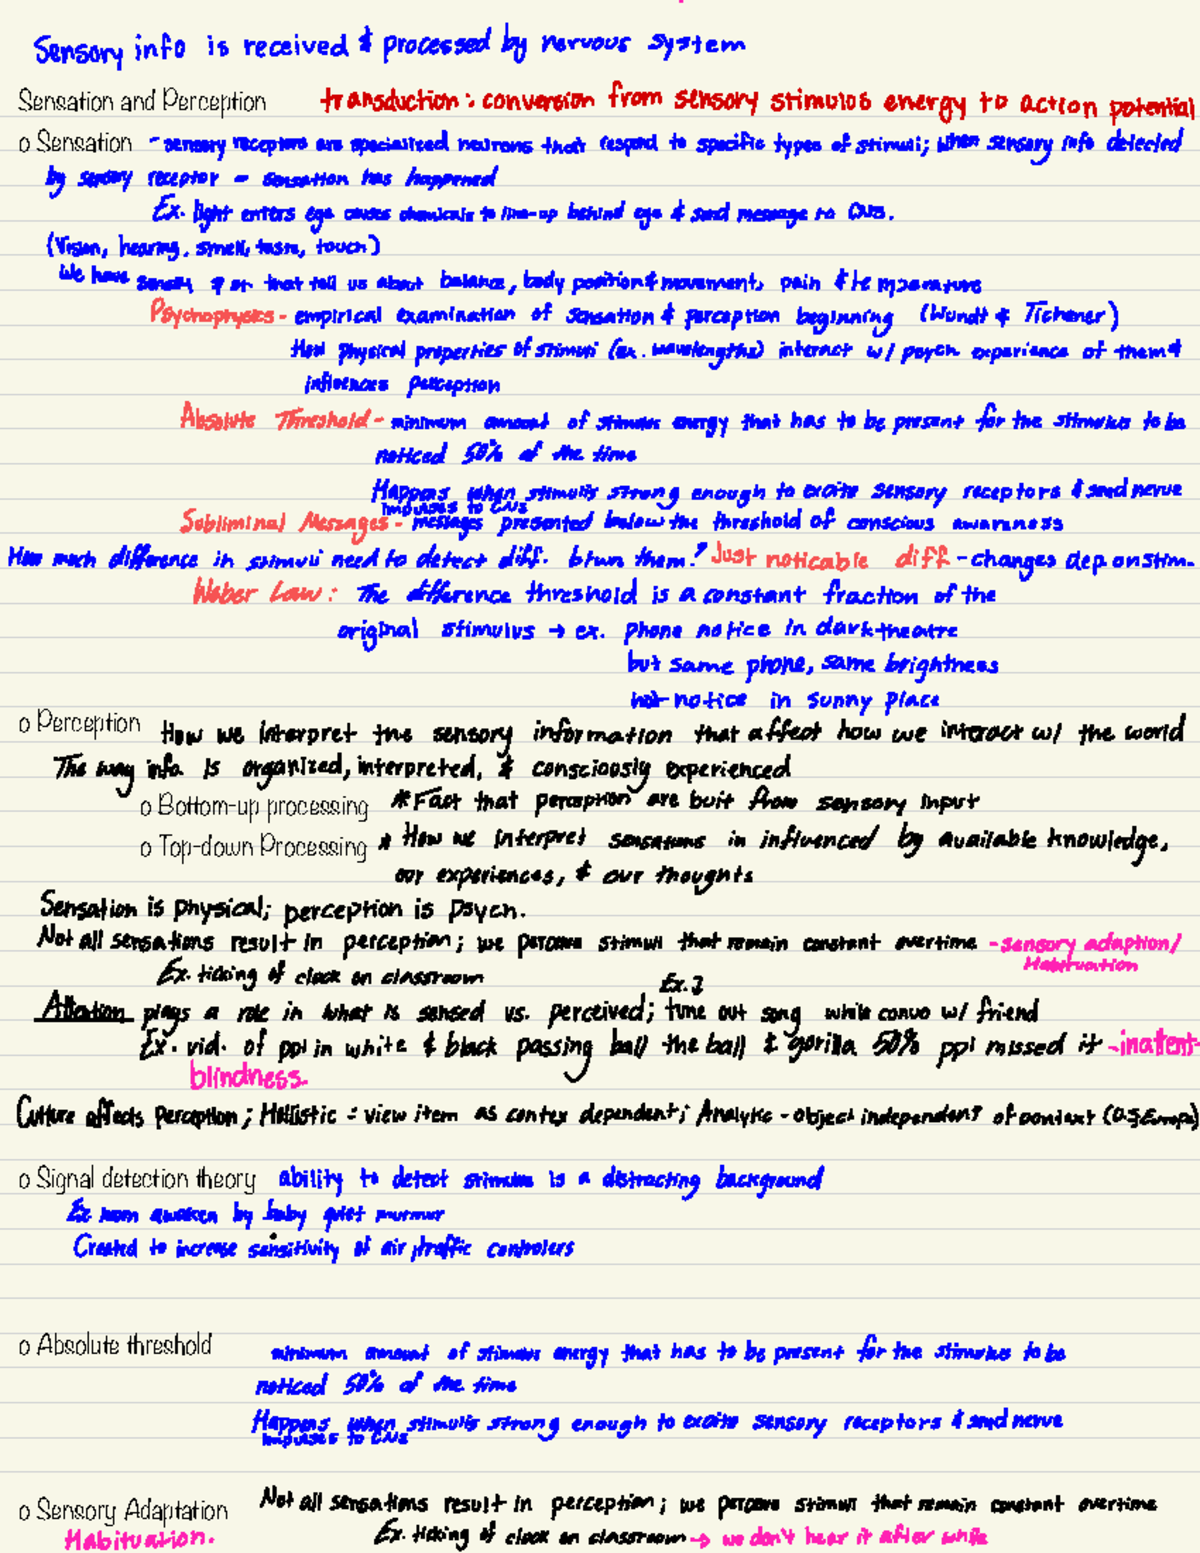 Sensory info is received & processed by nervous system
Sensation and Perception transduction: conversion from sensory stimulus energy to action potential
o Sensation - sensory receptors are specialized neurons that respond to specific types of stimuli; when sensory info detected
by sensory receptor - sensation has happened
Ex. light enters eye causes chemicals to line-up behind eye & send message to CNS.
(Vision, hearing, smell, taste, touch)
We have that tell us about balance, body position & movement, pain & temperature
Psychophysics - empirical examination of sensation & perception beginning (Wundt & Tichener)
How physical properties of stimuli (ex. wavelengths) interact w/ psych experience of them &
influences perception
Absolute Threshold - minimum amount of stimulus energy that has to be present for the stimulus to be
noticed 50% of the time
Happens when stimulis strong enough to excite sensory receptors & send nerve
impulses to CNS
Subliminal Messages - messages presented below the threshold of conscious awareness
How much difference in stimuli need to detect diff. btwn them? Just noticable diff - changes dep on stim.
Weber Law: The difference threshold is a constant fraction of the
original stimulus → ex. phone notice in dark theatre
but same phone, same brightness
not notice in sunny place
o Perception How we interpret the sensory information that affect how we interact w/ the world
The way info is organized, interpreted, & consciously experienced
o Bottom-up processing * Fact that perception are buit from sensory input
o Top-down Processing * How we interpret sensations in influenced by available knowledge,
our experiences, & our thoughts
Sensation is physical; perception is psych.
Not all sensations result in perception; we perceive stimuli that remain constant overtime - sensory adaption/
Habituation
Ex. ticking of clock on classroom
Ex. 2
Attention plays a role in what is sensed vs. perceived; tune out song while convo w/ friend
Ex. vid. of ppl in white & black passing ball the ball & gorilla 50% ppl missed it - inattent
blindness.
Culture affects perception; Hollistic = view item as contex dependent; Analytic - object independent of context (U.S Europe)
o Signal detection theory ability to detect stimulus is a distracting background
Ex mom awaken by baby quiet murmur
Created to increase sensitivity of air traffic controlers
o Absolute threshold minimum amount of stimulus energy that has to be present for the stimulus to be
noticed 50% of the time
Happens when stimulis strong enough to excite sensory receptors & send nerve
impulses to CNS
o Sensory Adaptation Not all sensations result in perception; we perceive stimuli that remain constant overtime
Habituation. Ex. ticking of clock on classroom → we don't hear it after while